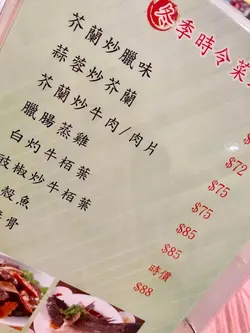 冬季時令菜
芥蘭炒臘味
蒜蓉炒芥蘭 $72
芥蘭炒牛肉/肉片 $75
臘腸蒸雞 $75
白灼牛栢葉 $85
豉椒炒牛栢葉 $85
殼魚 時價
骨 $88